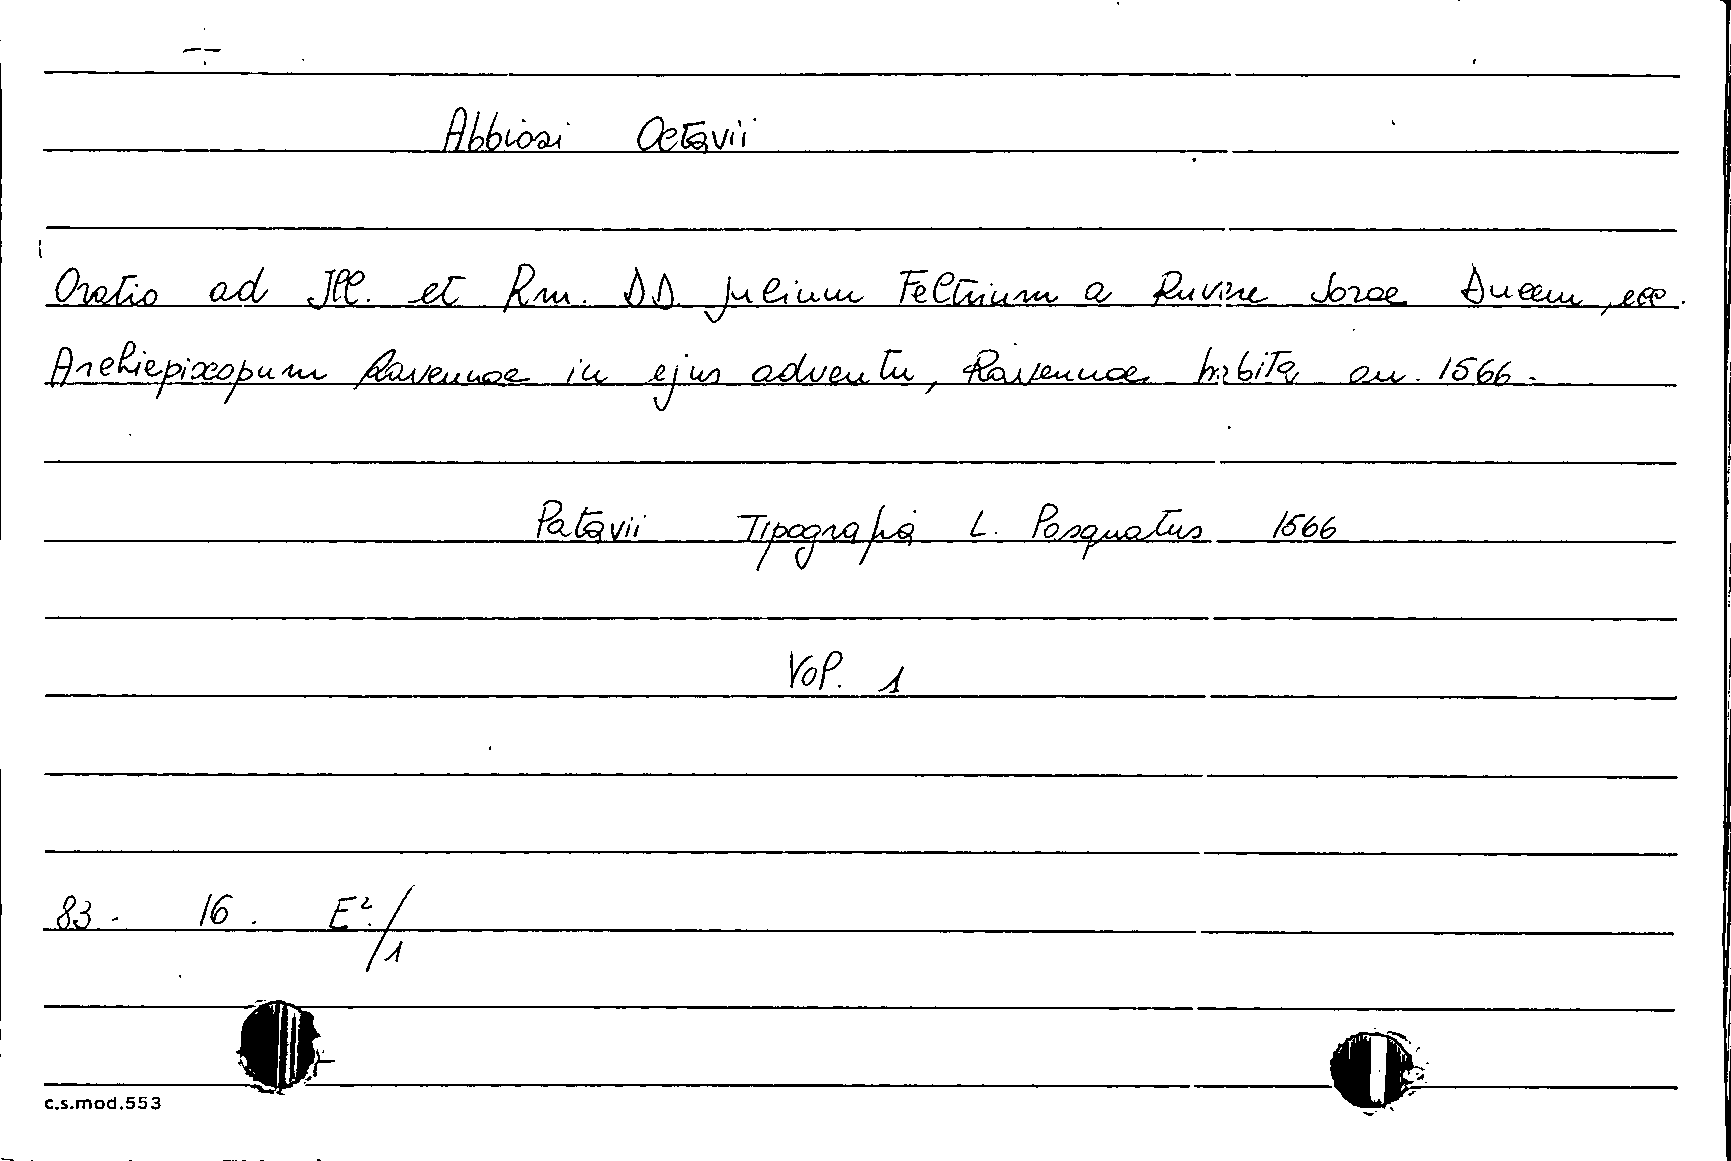 Abbiosi Octavii
Oratio ad Ill. et Rm. DD. Julium Feltrium a Ruvere Sorae Ducem, ecc.
Archiepixcopum Ravennae in ejus adventu, Ravennae habita an. 1566.
Patavii Tipografia L. Pasquatus 1566
Vol. 1
83. 16. E²./1
c.s.mod.553